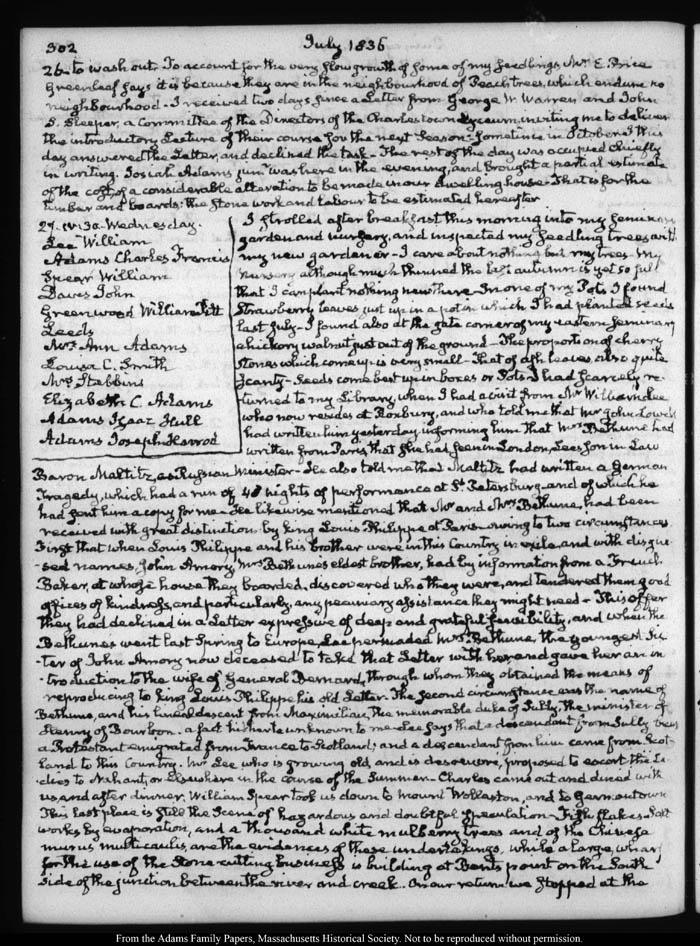 302
July 1836
26. to wash out. To account for the very slow growth of some of my seedlings Mr. E. Price
Greenleaf says it is because they are in the neighbourhood of Peach trees, which endure no
neighbourhood. I received two days since a Letter from George W. Warren and John
S. Sleeper, a Committee of the Directors of the Charlestown Lyceum, inviting me to deliver
the introductory Lecture of their course for the next Season. Sometime in October. I this
day answered the Letter, and declined the task. The rest of the day was occupied chiefly
in writing. Josiah Adams junr. was here in the evening, and brought a partial estimate
of the cost of a considerable alteration to be made in our dwelling house. That is for the
timber and boards: the stone work and Labour to be estimated hereafter
27. IV:30. Wednesday.
Lee William
Adams Charles Francis
Spear William
Daves John
Greenwood William Pitt
Leeds
Mrs. Ann Adams
Louisa C. Smith
Mrs. Stebbins
Elizabeth C. Adams
Adams Isaac Hull
Adams Joseph Harrod
I strolled after breakfast this morning into my Seminary
garden and nursery, and inspected my seedling trees with
my new gardener. I care about nothing but my trees. My
nursery although much thinned the last autumn is yet so full
that I can plant nothing new there. In one of my Pots, I found
Strawberry leaves just up in a pot in which I had planted seeds
last July. I found also at the gate corner of my eastern Seminary
a hickory walnut just out of the ground. The proportion of cherry
stones which come up is very small. That of ash leaves also quite
scanty. Seeds come best up in boxes or Pots. I had scarcely re-
turned to my Library, when I had a visit from Mr. William Lee
who now resides at Roxbury, and who told me that Mr. John Lowell
had written him yesterday, informing him that Mrs. Bethune had
written from Paris that she had seen in London, Lee's Son in Law
Baron Maltitz, as Russian Minister. He also told me that Maltitz had written a German
Tragedy, which had a run of 40 nights of performance at St. Petersburg and of which he
had sent him a copy for me. Lee likewise mentioned that Mr. and Mrs. Bethune, had been
received with great distinction by king Louis Philippe at Paris owing to two circumstances
First that when Louis Philippe and his brother were in this Country in exile and with disgui-
sed names, John Amory, Mrs. Bethune's eldest brother, had by information from a French
Baker, at whose house they boarded, discovered who they were, and tendered them good
offices of kindness, and particularly any pecuniary assistance they might need. This offer
they had declined in a Letter expressive of deep and grateful sensibility, and when the
Bethunes went last Spring to Europe, Lee persuaded Mrs. Bethune, the youngest Sis-
ter of John Amory now deceased to take that Letter with her, and gave her an in-
troduction to the wife of General Bernard, through whom they obtained the means of
reproducing to king Louis Philippe his old Letter. The second circumstance was the name of
Bethune, and his lineal descent from Maximilian, the memorable duke of Sully, the minister of
Henry of Bourbon. a fact hitherto unknown to me. Lee says that a descendant from Sully
a Protestant emigrated from France to Scotland, and a descendant from him came from Scot-
land to this Country. Mr. Lee who is growing old, and is, proposed to escort the La-
dies to Nahant, or Elsewhere in the course of the Summer. Charles came out and dined with
us, and after dinner, William Spear took us down to Mount Wollaston, and to Germantown
This last place is still the scene of hazardous and doubtful speculation. Fish flakes Salt
works by evaporation, and a thousand white mulberry trees and of the Chinese
murus multicaulis, are the evidences of these undertakings, while a large wharf
for the use of the Stone-cutting business is building at Bents point on the South
side of the junction between the river and creek. On our return we stopped at the
From the Adams Family Papers, Massachusetts Historical Society. Not to be reproduced without permission.